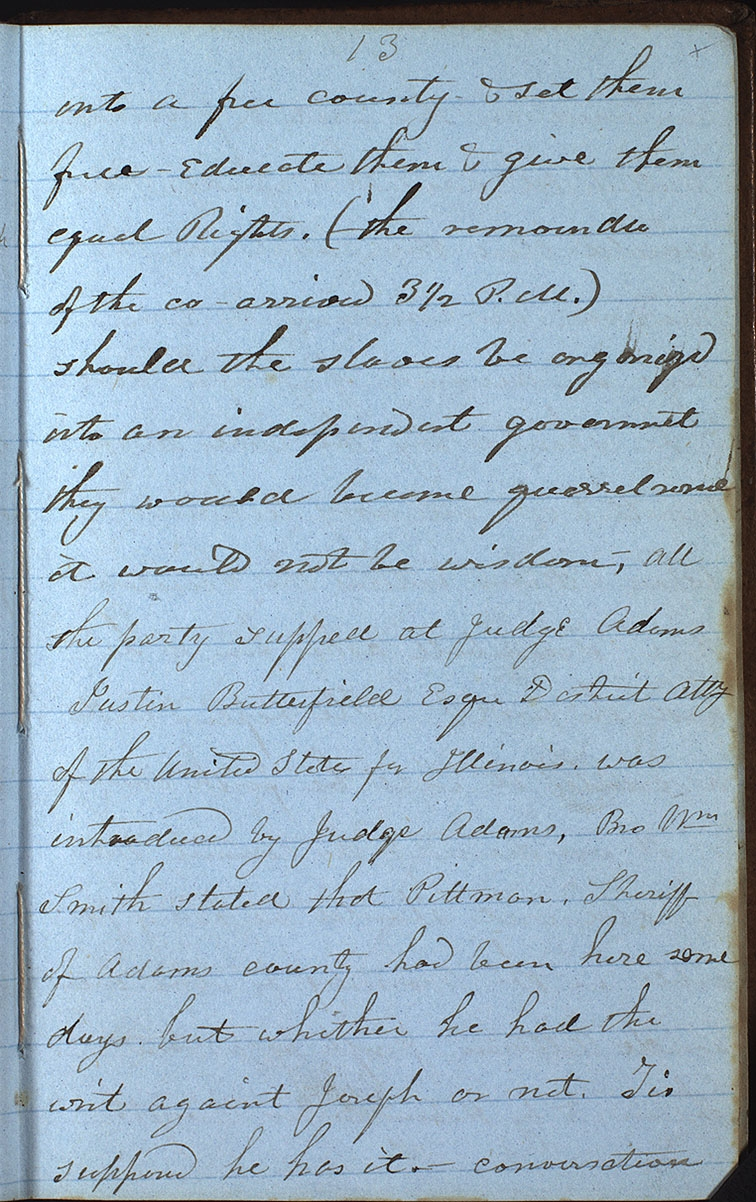 13
into a free county & set them
free - Educate them & give them
equal Rights. (the remainder
of the co - arrived 3 1/2 P.M.)
should the slaves be organized
into an independent governmet
they would become quarrelsome
it would not be wisdom, all
the party supped at Judge Adams
Justin Butterfield Esqu District Atty
of the United States for Illinois. was
introduced by Judge Adams, Bro Wm
Smith stated that Pittman. Sheriff
of Adams county had been here some
days. but whither he had the
writ againt Joseph or not. Tis
suppood he has it. - conversation